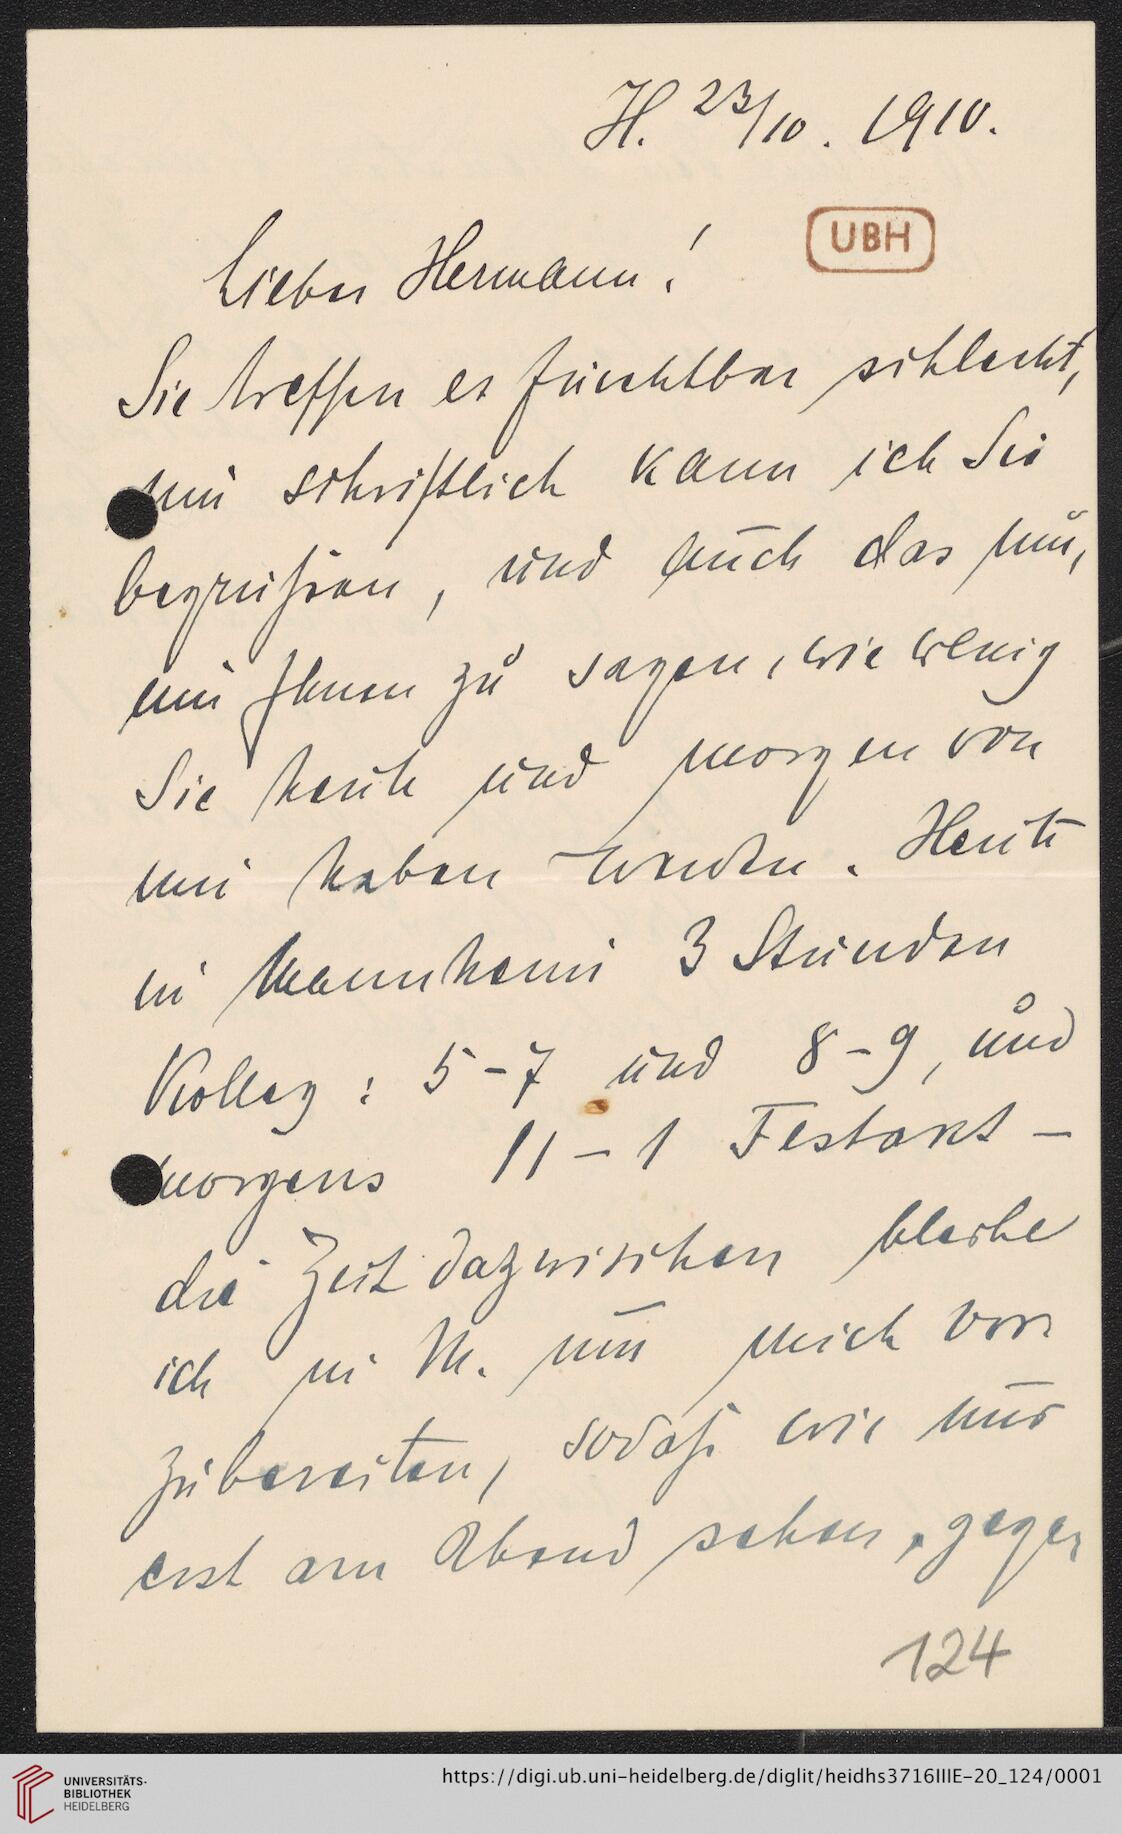 H. 23/10. 1910.
UBH
Lieber Hermann!
Sie treffen es furchtbar schlecht,
nur schriftlich kann ich Sie
begrüßen, und auch das nur,
um Ihnen zu sagen, wie wenig
Sie heute und morgen von
mir haben werden. Heute
in Mannheim 3 Stunden
Kolleg: 5-7 und 8-9, und
morgens 11-1 Festakt -
die Zeit dazwischen bleibe
ich in M. um mich vor
zubereiten, sodaß wir uns
erst am Abend sehen, gegen
124
UNIVERSITÄTS-
BIBLIOTHEK
HEIDELBERG
https://digi.ub.uni-heidelberg.de/diglit/heidhs3716IIIE-20_124/0001